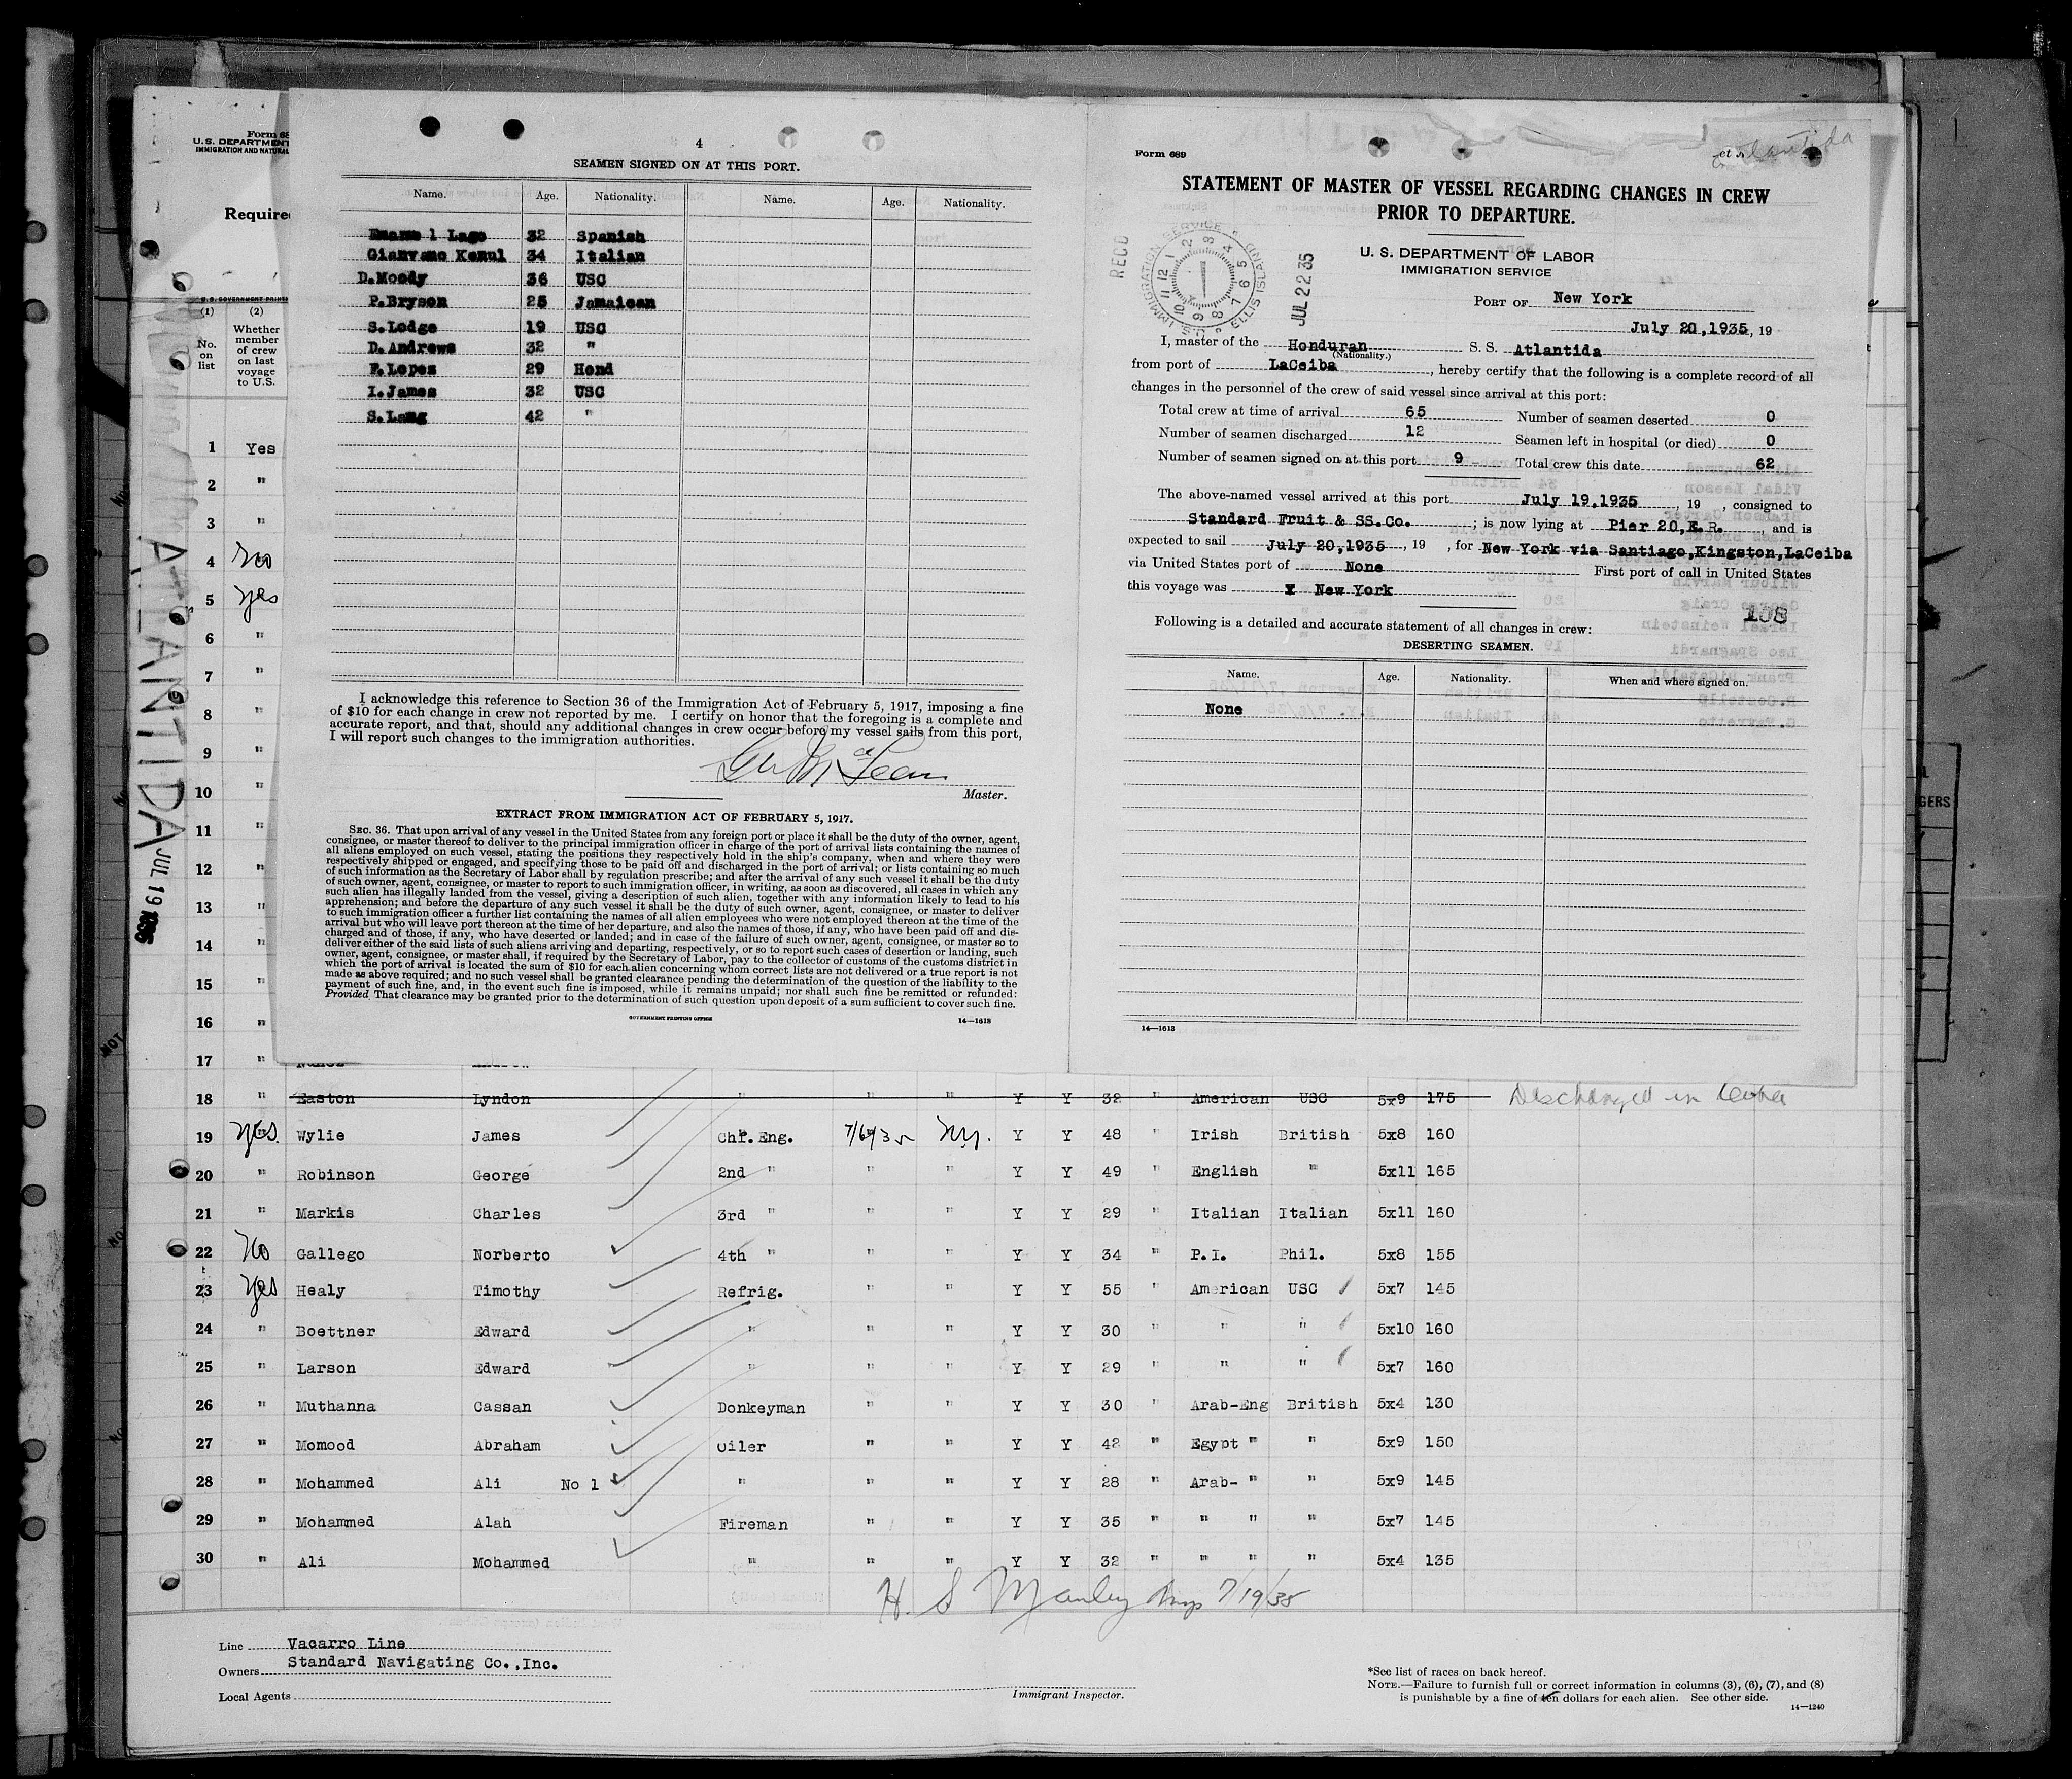 Form 68
U. S. DEPARTMENT
IMMIGRATION AND NATURAL
Require
(1) (2)
No. on list
Whether member of crew on last voyage to U.S.
1 Yes
2 "
3 "
4 No
5 yes
6 "
7 "
8 "
9 "
10 "
11 "
12 "
13 "
14 "
15 "
16 "
17 "
ATLANTIDA JUL 19 1935
4
SEAMEN SIGNED ON AT THIS PORT.
Name. Age. Nationality. Name. Age. Nationality.
Lago 32 Spanish
34 Italian
D.Moody 36 USC
P.Bryson 25 Jamaican
S.Lodge 19 USC
D.Andrews 32 "
F.Lopez 29 Hond
I.James 32 USC
S.Lang 42 "
I acknowledge this reference to Section 36 of the Immigration Act of February 5, 1917, imposing a fine
of $10 for each change in crew not reported by me. I certify on honor that the foregoing is a complete and
accurate report, and that, should any additional changes in crew occur before my vessel sails from this port,
I will report such changes to the immigration authorities.
Master.
EXTRACT FROM IMMIGRATION ACT OF FEBRUARY 5, 1917.
SEC. 36. That upon arrival of any vessel in the United States from any foreign port or place it shall be the duty of the owner, agent,
consignee, or master thereof to deliver to the principal immigration officer in charge of the port of arrival lists containing the names of
all aliens employed on such vessel, stating the positions they respectively hold in the ship's company, when and where they were
respectively shipped or engaged, and specifying those to be paid off and discharged in the port of arrival; or lists containing so much
of such information as the Secretary of Labor shall by regulation prescribe; and after the arrival of any such vessel it shall be the duty
of such owner, agent, consignee, or master to report to such immigration officer, in writing, as soon as discovered, all cases in which any
such alien has illegally landed from the vessel, giving a description of such alien, together with any information likely to lead to his
apprehension; and before the departure of any such vessel it shall be the duty of such owner, agent, consignee, or master to deliver
to such immigration officer a further list containing the names of all alien employees who were not employed thereon at the time of the
arrival but who will leave port thereon at the time of her departure, and also the names of those, if any, who have been paid off and dis-
charged and of those, if any, who have deserted or landed; and in case of the failure of such owner, agent, consignee, or master so to
deliver either of the said lists of such aliens arriving and departing, respectively, or so to report such cases of desertion or landing, such
owner, agent, consignee, or master shall, if required by the Secretary of Labor, pay to the collector of customs of the customs district in
which the port of arrival is located the sum of $10 for each alien concerning whom correct lists are not delivered or a true report is not
made as above required; and no such vessel shall be granted clearance pending the determination of the question of the liability to the
payment of such fine, and, in the event such fine is imposed, while it remains unpaid; nor shall such fine be remitted or refunded:
Provided That clearance may be granted prior to the determination of such question upon deposit of a sum sufficient to cover such fine.
GOVERNMENT PRINTING OFFICE 14—1613
Form 689
Atlantida
STATEMENT OF MASTER OF VESSEL REGARDING CHANGES IN CREW
PRIOR TO DEPARTURE.
RECD U.S. IMMIGRATION SERVICE ELLIS ISLAND JUL 22 35
U. S. DEPARTMENT OF LABOR
IMMIGRATION SERVICE
PORT OF New York
July 20,1935, 19
I, master of the Honduran S. S. Atlantida
(Nationality.)
from port of LaCeiba, hereby certify that the following is a complete record of all
changes in the personnel of the crew of said vessel since arrival at this port:
Total crew at time of arrival 65 Number of seamen deserted 0
Number of seamen discharged 12 Seamen left in hospital (or died) 0
Number of seamen signed on at this port 9 Total crew this date 62
The above-named vessel arrived at this port July 19,1935, 19 , consigned to
Standard Fruit & SS.Co. ; is now lying at Pier 20,E.R. and is
expected to sail July 20,1935, 19 , for New York via Santiago,Kingston,LaCeiba
via United States port of None First port of call in United States
this voyage was New York
108
Following is a detailed and accurate statement of all changes in crew:
DESERTING SEAMEN.
Name. Age. Nationality. When and where signed on.
None
14—1613
18 " Easton Lyndon " " " Y Y 32 " American USC 5x9 175 Discharged in Ceiba
19 yes. Wylie James Chf. Eng. 7/6/35 N.Y. Y Y 48 " Irish British 5x8 160
20 " Robinson George 2nd " " " Y Y 49 " English " 5x11 165
21 " Markis Charles 3rd " " " Y Y 29 " Italian Italian 5x11 160
22 No Gallego Norberto 4th " " " Y Y 34 " P.I. Phil. 5x8 155
23 yes Healy Timothy Refrig. " " Y Y 55 " American USC 5x7 145
24 " Boettner Edward " " " Y Y 30 " " " 5x10 160
25 " Larson Edward " " " Y Y 29 " " " 5x7 160
26 " Muthanna Cassan Donkeyman " " Y Y 30 " Arab-Eng British 5x4 130
27 " Momood Abraham Oiler " " Y Y 42 " Egypt " " 5x9 150
28 " Mohammed Ali No 1 " " " Y Y 28 " Arab- " " 5x9 145
29 " Mohammed Alah Fireman " " Y Y 35 " " " " 5x7 145
30 " Ali Mohammed " " " Y Y 32 " " " " 5x4 135
H. S Manley Insp 7/19/35
Line Vacarro Line
Owners Standard Navigating Co.,Inc.
Local Agents
Immigrant Inspector.
*See list of races on back hereof.
NOTE.—Failure to furnish full or correct information in columns (3), (6), (7), and (8)
is punishable by a fine of ten dollars for each alien. See other side.
14—1240